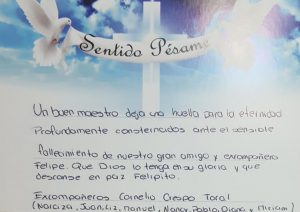 Sentido Pésame
Un buen maestro deja una huella para la eternidad
Profundamente consternados ante el sensible
fallecimiento de nuestro gran amigo y excompañero
Felipe. Que Dios lo tenga en su gloria y que
descanse en paz Felipito.
Excompañeros Cornelio Crespo Toral
(Narciza, Juan, Liz, Manuel, Nancy, Pablo, Diana y Miriam)